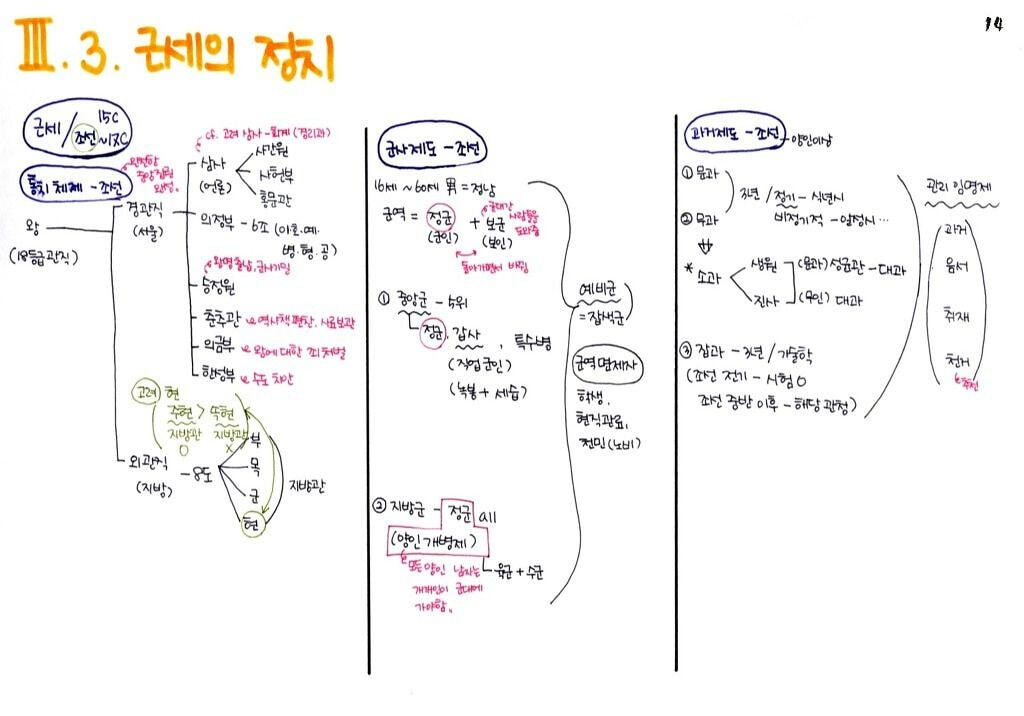 14
III. 3. 근세의 정치
근세 / 조선 15C ~17C
통치 체제 - 조선
완전한
중앙집권
완성.
cf. 고려 삼사 - 회계 (경리과)
왕
(18등급 관직)
경관직
(서울)
삼사
(언론)
사간원
사헌부
홍문관
의정부 - 6조 (이·호·예·
병·형·공)
왕명출납, 군사기밀
승정원
춘추관 역사책 편찬, 사료보관
의금부 왕에 대한 죄 처벌
한성부 수도 치안
고려 현
주현 > 속현
지방관 지방관
O X
외관직
(지방)
- 8도
부
목
군
현
지방관
군사제도 - 조선
16세 ~ 60세 男 = 정남
군역 = 정군 + 보군
(군인) (보인)
군대간
사람들을
도와줌
돌아가면서 바뀜
① 중앙군 - 5위
정군, 갑사, 특수병
(직업군인)
(녹봉 + 세습)
예비군
= 잡색군
군역 면제자
학생,
현직관료,
천민 (노비)
② 지방군 - 정군 all
(양인개병제)
모든 양인 남자는
개개인이 군대에
가야함.
육군 + 수군
과거제도 - 조선 - 양인이상
① 문과
② 무과
3년 / 정기 - 식년시
비정기적 - 알성시 ...
* 소과
생원
진사
(문과) 성균관 - 대과
(무인) 대과
③ 잡과 - 3년 / 기술학
(조선 전기 - 시험 O
조선 중반 이후 - 해당 관청)
관리 임명제
과거
음서
취재
천거
추천